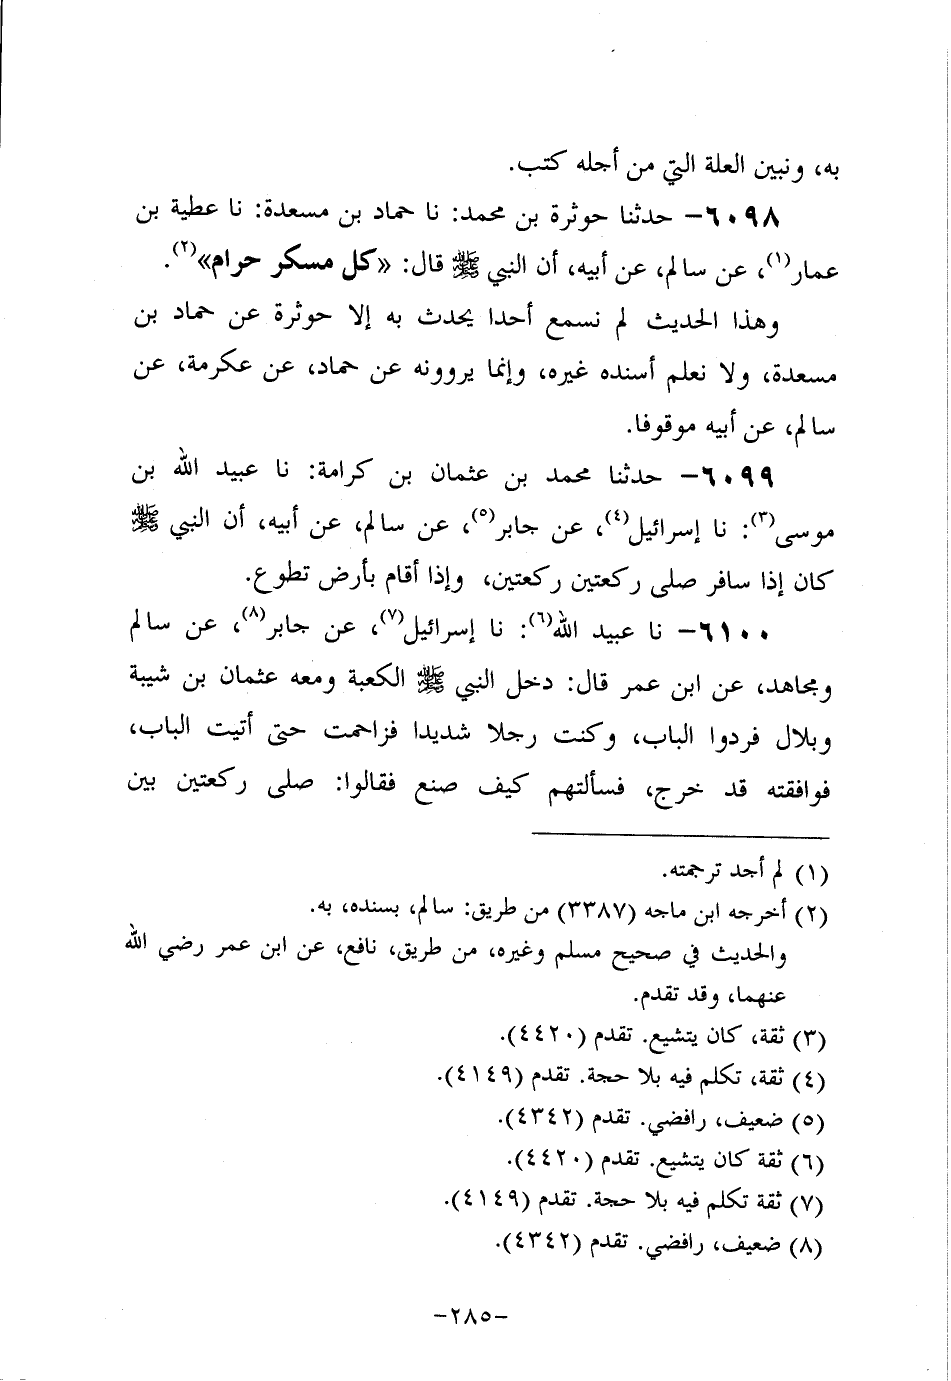 به، ونبين العلة التي من أجله كتب.
٦٠٩٨- حدثنا حوثرة بن محمد: نا حماد بن مسعدة: نا عطية بن
عمار(١)، عن سالم، عن أبيه، أن النبي ﷺ قال: «كل مسكر حرام»(٢).
وهذا الحديث لم نسمع أحدا يحدث به إلا حوثرة عن حماد بن
مسعدة، ولا نعلم أسنده غيره، وإنما يروونه عن حماد، عن عكرمة، عن
سالم، عن أبيه موقوفا.
٦٠٩٩- حدثنا محمد بن عثمان بن كرامة: نا عبيد الله بن
موسى(٣): نا إسرائيل(٤)، عن جابر(٥)، عن سالم، عن أبيه، أن النبي ﷺ
كان إذا سافر صلى ركعتين ركعتين، وإذا أقام بأرض تطوع.
٦١٠٠- نا عبيد الله(٦): نا إسرائيل(٧)، عن جابر(٨)، عن سالم
ومجاهد، عن ابن عمر قال: دخل النبي ﷺ الكعبة ومعه عثمان بن شيبة
وبلال فردوا الباب، وكنت رجلا شديدا فزاحمت حتى أتيت الباب،
فوافقته قد خرج، فسألتهم كيف صنع فقالوا: صلى ركعتين بين
(١) لم أجد ترجمته.
(٢) أخرجه ابن ماجه (٣٣٨٧) من طريق: سالم، بسنده، به.
والحديث في صحيح مسلم وغيره، من طريق، نافع، عن ابن عمر رضي الله
عنهما، وقد تقدم.
(٣) ثقة، كان يتشيع. تقدم (٤٤٢٠).
(٤) ثقة، تكلم فيه بلا حجة. تقدم (٤١٤٩).
(٥) ضعيف، رافضي. تقدم (٤٣٤٢).
(٦) ثقة كان يتشيع. تقدم (٤٤٢٠).
(٧) ثقة تكلم فيه بلا حجة. تقدم (٤١٤٩).
(٨) ضعيف، رافضي. تقدم (٤٣٤٢).
-٢٨٥-